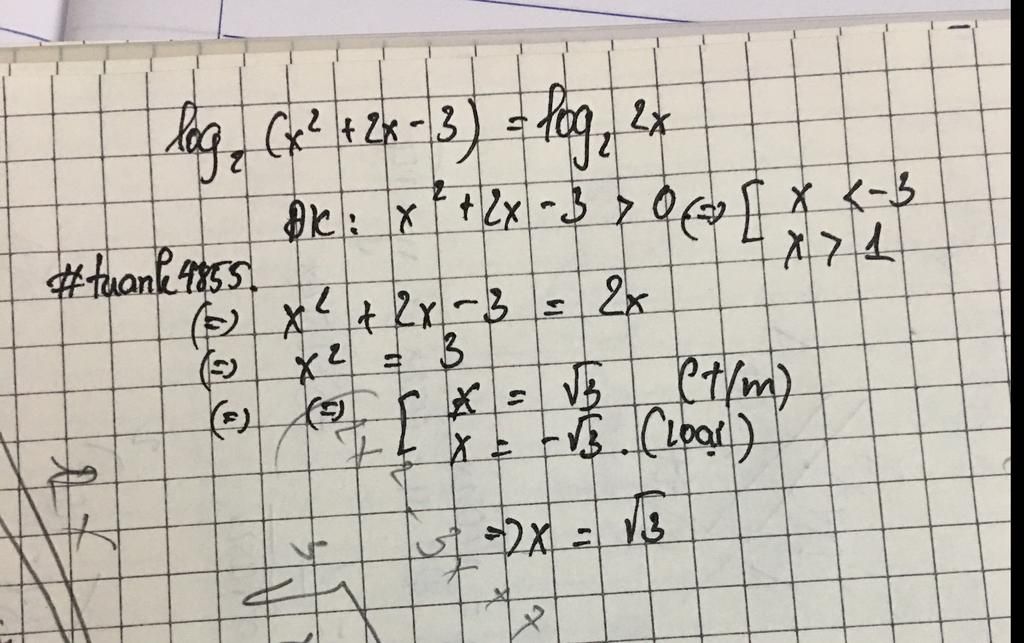 log₂ (x² + 2x - 3) = log₂ 2x
ĐK: x² + 2x - 3 > 0 (=) [ x < -3
x > 1
#tuank4855.
(=) x² + 2x - 3 = 2x
(=) x² = 3
(=) (=) [ x = √3 (t/m)
x = -√3. (loại)
=> x = √3